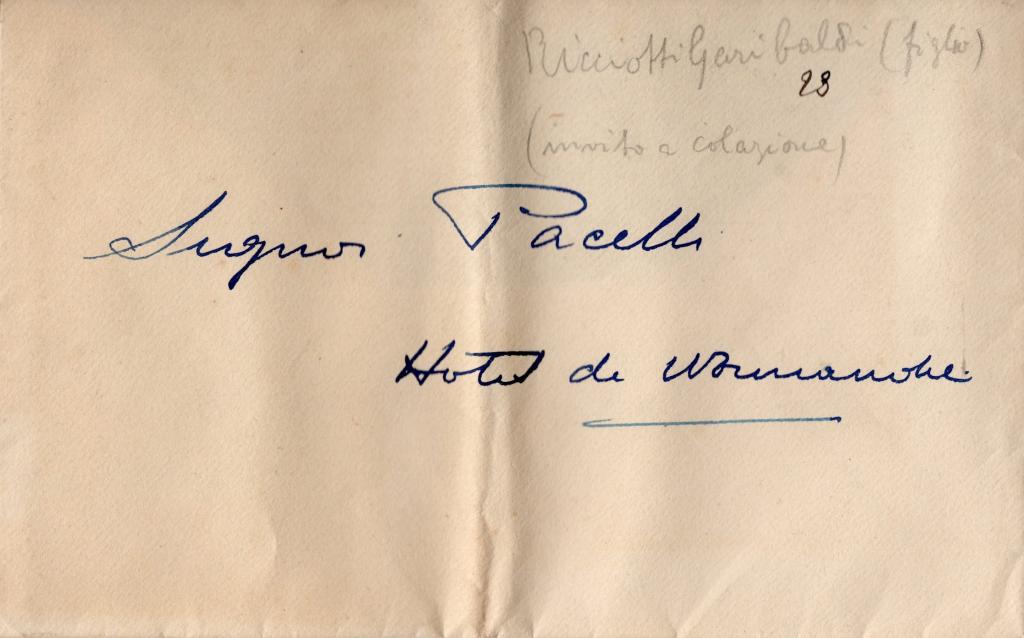 Ricciotti Garibaldi (figlio)
23
(invito a colazione)
Signor Pacelli
Hotel de Normandie